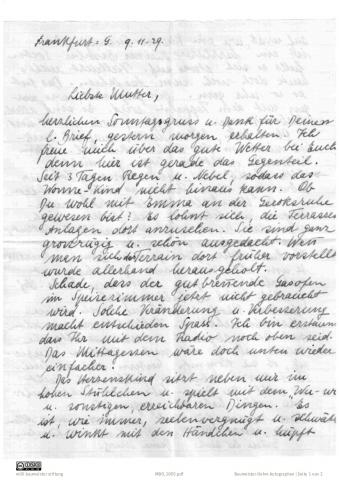 Frankfurt: G. 9.11.29.
Liebste Mutter,
herzlichen Sonntagsgruss u. Dank für Deinen
l. Brief, gestern morgen erhalten. Ich
freue mich über das gute Wetter bei Euch
denn hier ist gerade das Gegenteil.
Seit 3 Tagen Regen u. Nebel, sodass das
Wonne-Kind nicht hinaus kann. Ob
Du wohl mit Emma an der Geroksruhe
gewesen bist? Es lohnt sich, die Terrassen
Anlagen dort anzusehen. Sie sind ganz
grosszügig u. schön ausgedacht. Wenn
man sich das Terrain dort früher vorstellt
wurde allerhand herausgeholt.
Schade, dass der gutbrennende Gasofen
im Speisezimmer jetzt nicht gebraucht
wird. Solche Veränderung u. Verbesserung
macht entschieden Spass. Ich bin erstaunt
dass Ihr mit dem Radio noch oben seid.
Das Mittagessen wäre doch unten wieder
einfacher!
Das Herzenskind sitzt neben mir im
hohen Stühlchen u. spielt mit dem "Wu-wu"
u. sonstigen, erreichbaren Dingen. Es
ist, wie immer, seelenvergnügt u. schwätzt
u. winkt mit den Händchen u. hüpft
willi baumeister stiftung
Baumeister Online Autographen | Seite 1 von 2